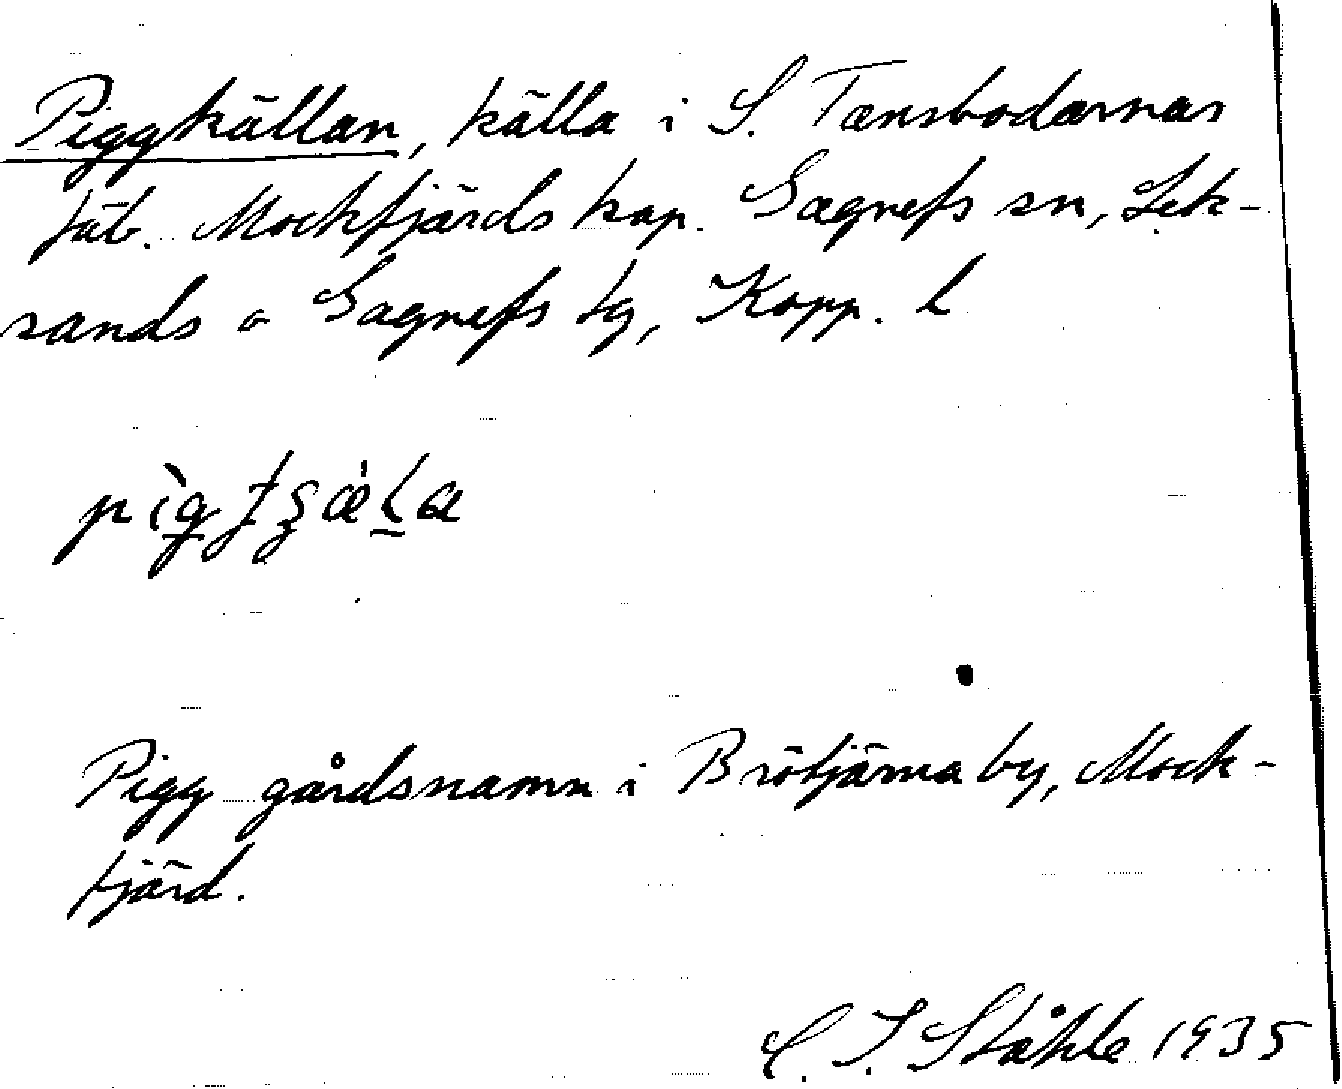 Piggkällan, källa i S. Tansbodarnas
fäb. Mockfjärds kap. Gagnefs sn, Lek-
sands o Gagnefs tg, Kopp. l
Pigg gårdsnamn i Brötjärna by, Mock-
fjärd.
C. I. Ståhle 1935